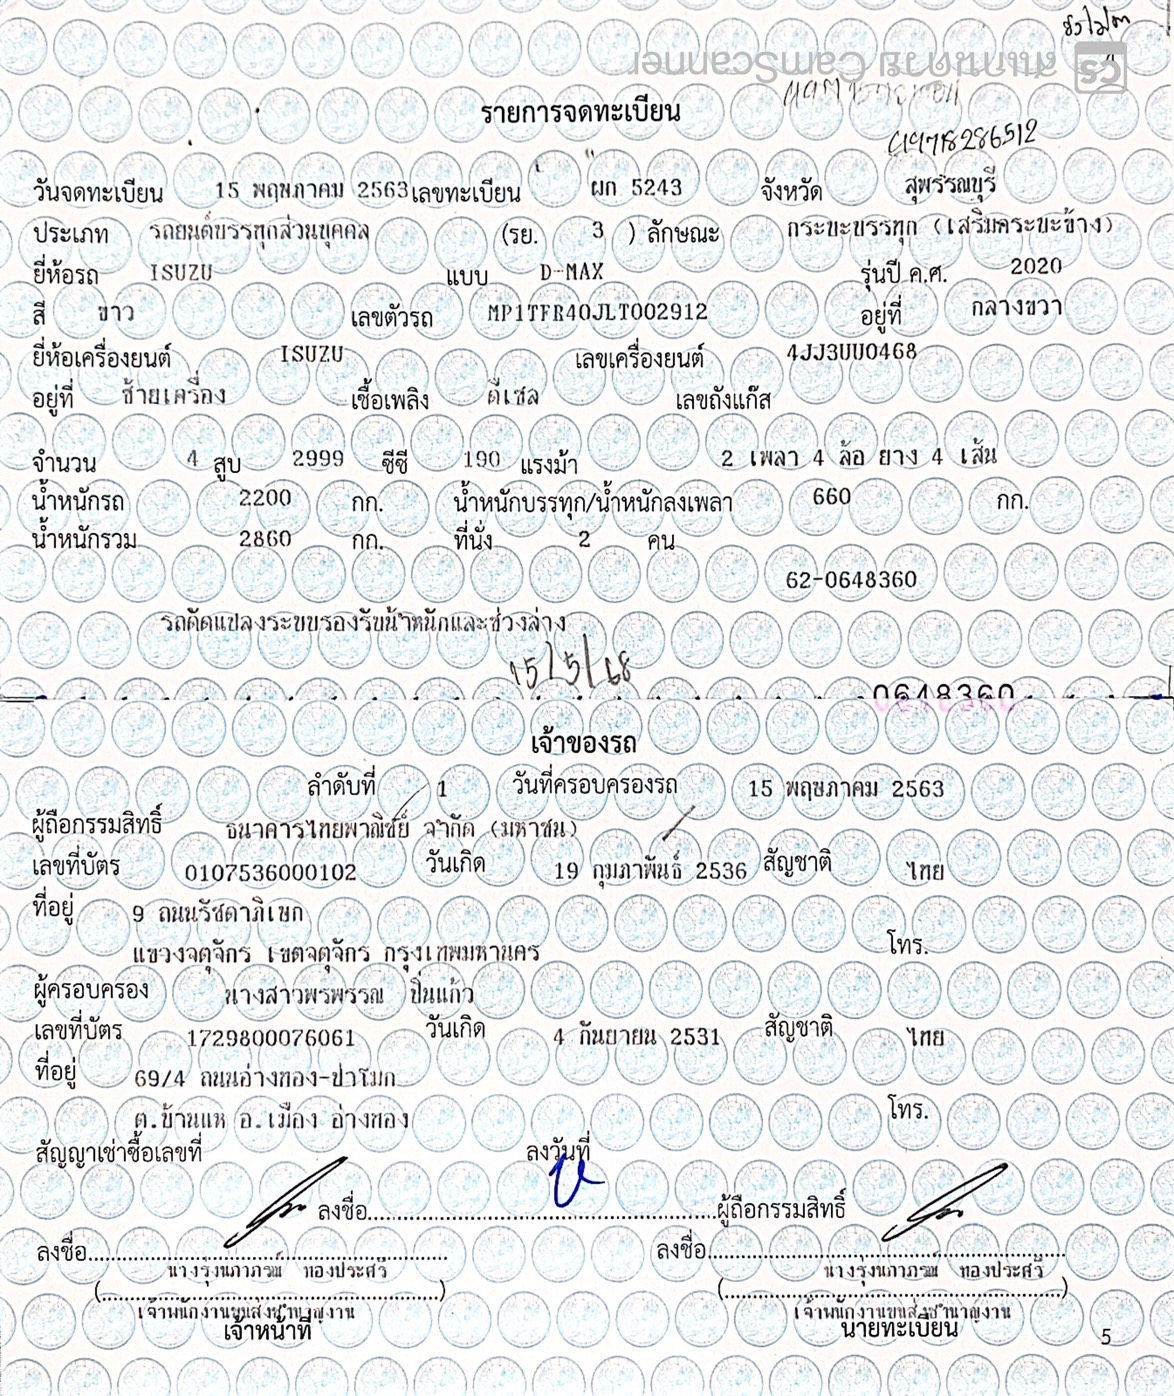 สแกนด้วย CamScanner
รายการจดทะเบียน
วันจดทะเบียน 15 พฤษภาคม 2563 เลขทะเบียน ผก 5243 จังหวัด สุพรรณบุรี
ประเภท รถยนต์บรรทุกส่วนบุคคล (รย. 3 ) ลักษณะ กระบะบรรทุก (เสริมกระบะข้าง)
ยี่ห้อรถ ISUZU แบบ D-MAX รุ่นปี ค.ศ. 2020
สี ขาว เลขตัวรถ MP1TFR40JLT002912 อยู่ที่ กลางขวา
ยี่ห้อเครื่องยนต์ ISUZU เลขเครื่องยนต์ 4JJ3UU0468
อยู่ที่ ซ้ายเครื่อง เชื้อเพลิง ดีเซล เลขถังแก๊ส
จำนวน 4 สูบ 2999 ซีซี 190 แรงม้า 2 เพลา 4 ล้อ ยาง 4 เส้น
น้ำหนักรถ 2200 กก. น้ำหนักบรรทุก/น้ำหนักลงเพลา 660 กก.
น้ำหนักรวม 2860 กก. ที่นั่ง 2 คน
62-0648360
รถดัดแปลงระบบรองรับน้ำหนักและช่วงล่าง
15/5/68
0648360
เจ้าของรถ
ลำดับที่ 1 วันที่ครอบครองรถ 15 พฤษภาคม 2563
ผู้ถือกรรมสิทธิ์ ธนาคารไทยพาณิชย์ จำกัด (มหาชน)
เลขที่บัตร 0107536000102 วันเกิด 19 กุมภาพันธ์ 2536 สัญชาติ ไทย
ที่อยู่ 9 ถนนรัชดาภิเษก
แขวงจตุจักร เขตจตุจักร กรุงเทพมหานคร โทร.
ผู้ครอบครอง นางสาวพรพรรณ ปิ่นแก้ว
เลขที่บัตร 1729800076061 วันเกิด 4 กันยายน 2531 สัญชาติ ไทย
ที่อยู่ 69/4 ถนนอ่างทอง-ป่าโมก
ต.บ้านแห อ.เมือง อ่างทอง โทร.
สัญญาเช่าซื้อเลขที่ ลงวันที่
ลงชื่อ ผู้ถือกรรมสิทธิ์
ลงชื่อ ลงชื่อ
นางรุ่งนภาภรณ์ ทองประศรี นางรุ่งนภาภรณ์ ทองประศรี
เจ้าพนักงานขนส่งชำนาญงาน เจ้าพนักงานขนส่งชำนาญงาน
เจ้าหน้าที่ นายทะเบียน
5